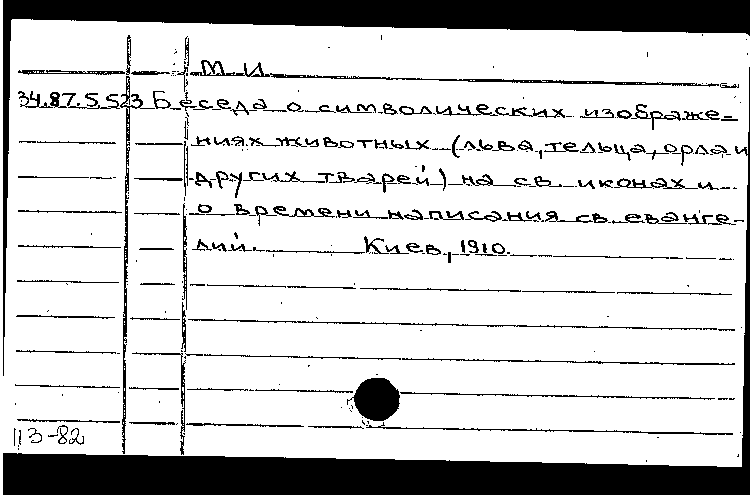 М И
34.87.5.523 Беседа о символических изображе-
ниях животных (льва, тельца, орла и
других тварей) на св. иконах и
о времени написания св. еванге-
лий. Киев, 1910.
113-82